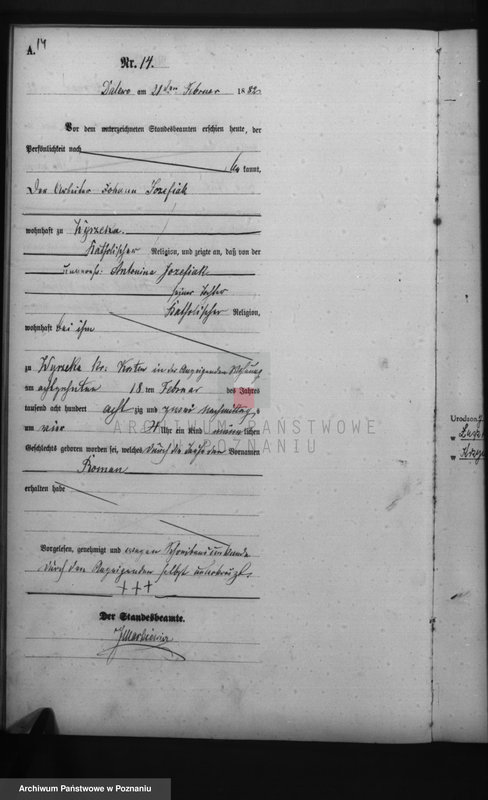 A. 14
Nr. 14.
Dalewo am 21ten Februar 1882
Vor dem unterzeichneten Standesbeamten erschien heute, der
Persönlichkeit nach
kannt,
Der Arbeiter Johann Jozefiak
wohnhaft zu Wyrzeka
Katholischer Religion, und zeigte an, daß von der
Antonina Jozefiak
seiner Tochter
Katholischer Religion,
wohnhaft bei ihm
zu Wyrzeka Kr: Kosten in der Anzeigenden Wohnung
am achtzehnten 18 ten Februar des Jahres
tausend acht hundert achtzig und zwei Nachmittags
um vier 4 Uhr ein Kind männlichen
Geschlechts geboren worden sei, welches durch die Taufe den Vornamen
Roman
erhalten habe
Vorgelesen, genehmigt und wegen Schreibensunkunde
durch den Anzeigenden selbst unterkreuzt.
+++
Der Standesbeamte.
ARCHIWUM PAŃSTWOWE
W POZNANIU
Urodzon
w
w
Archiwum Państwowe w Poznaniu